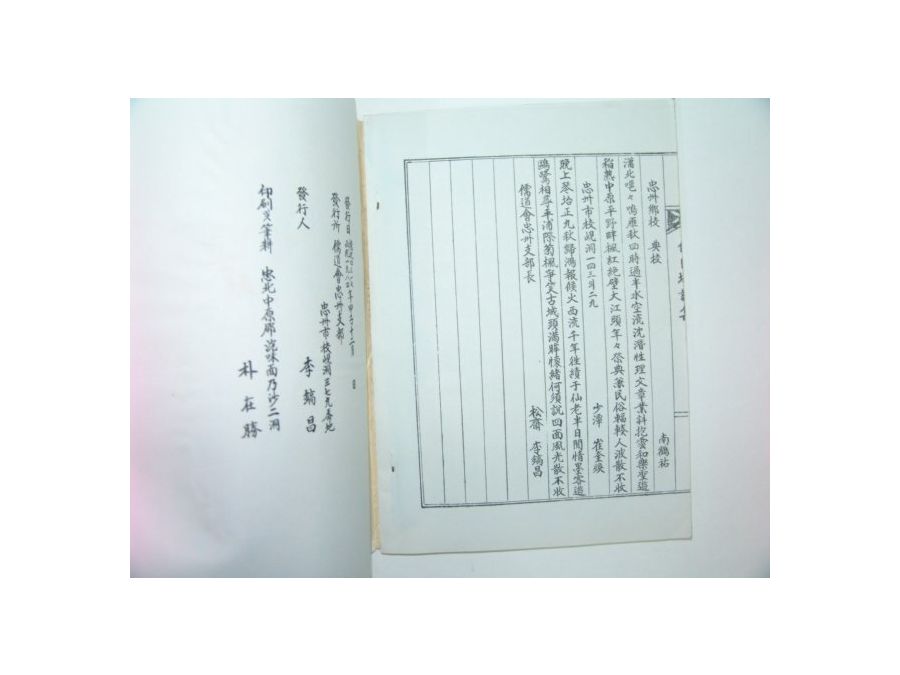 忠州鄕校 典校
南鶴祐
瀟北嗈々鳴雁秋四時過半水空流沈潛性理文章業科挖愛和樂聖遊
稻熟中原平野畔楓紅絶壁大江頭年々祭典蕫民俗輻輳人波散不收
忠州市校峴洞一四三의二九
少澤 崔奎嫄
晩上琴坮正九秋歸鴻報候火西流千年往績于仙老半日閒情墨客遊
鷗鷺相尋平浦際菊楓寧定古城頭滿酔懷緖何須說四面風光散不收
儒道會忠州支部長
松齋 李鎬昌
發行日 年 月
發行所 儒道會忠州支部
忠州市校峴洞三七九番地
發行人 李鎬昌
印刷及筆耕 忠北中原郡 面乃沙二洞
朴在勝